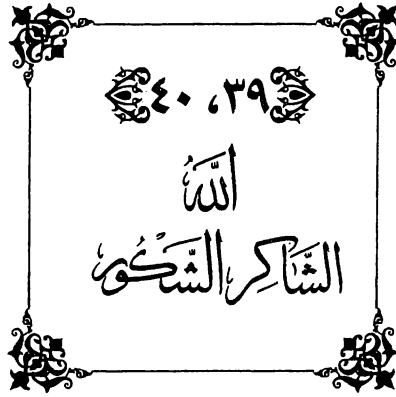 ٣٩، ٤٠
اللَّهُ
الشَّاكِر الشَّكُور